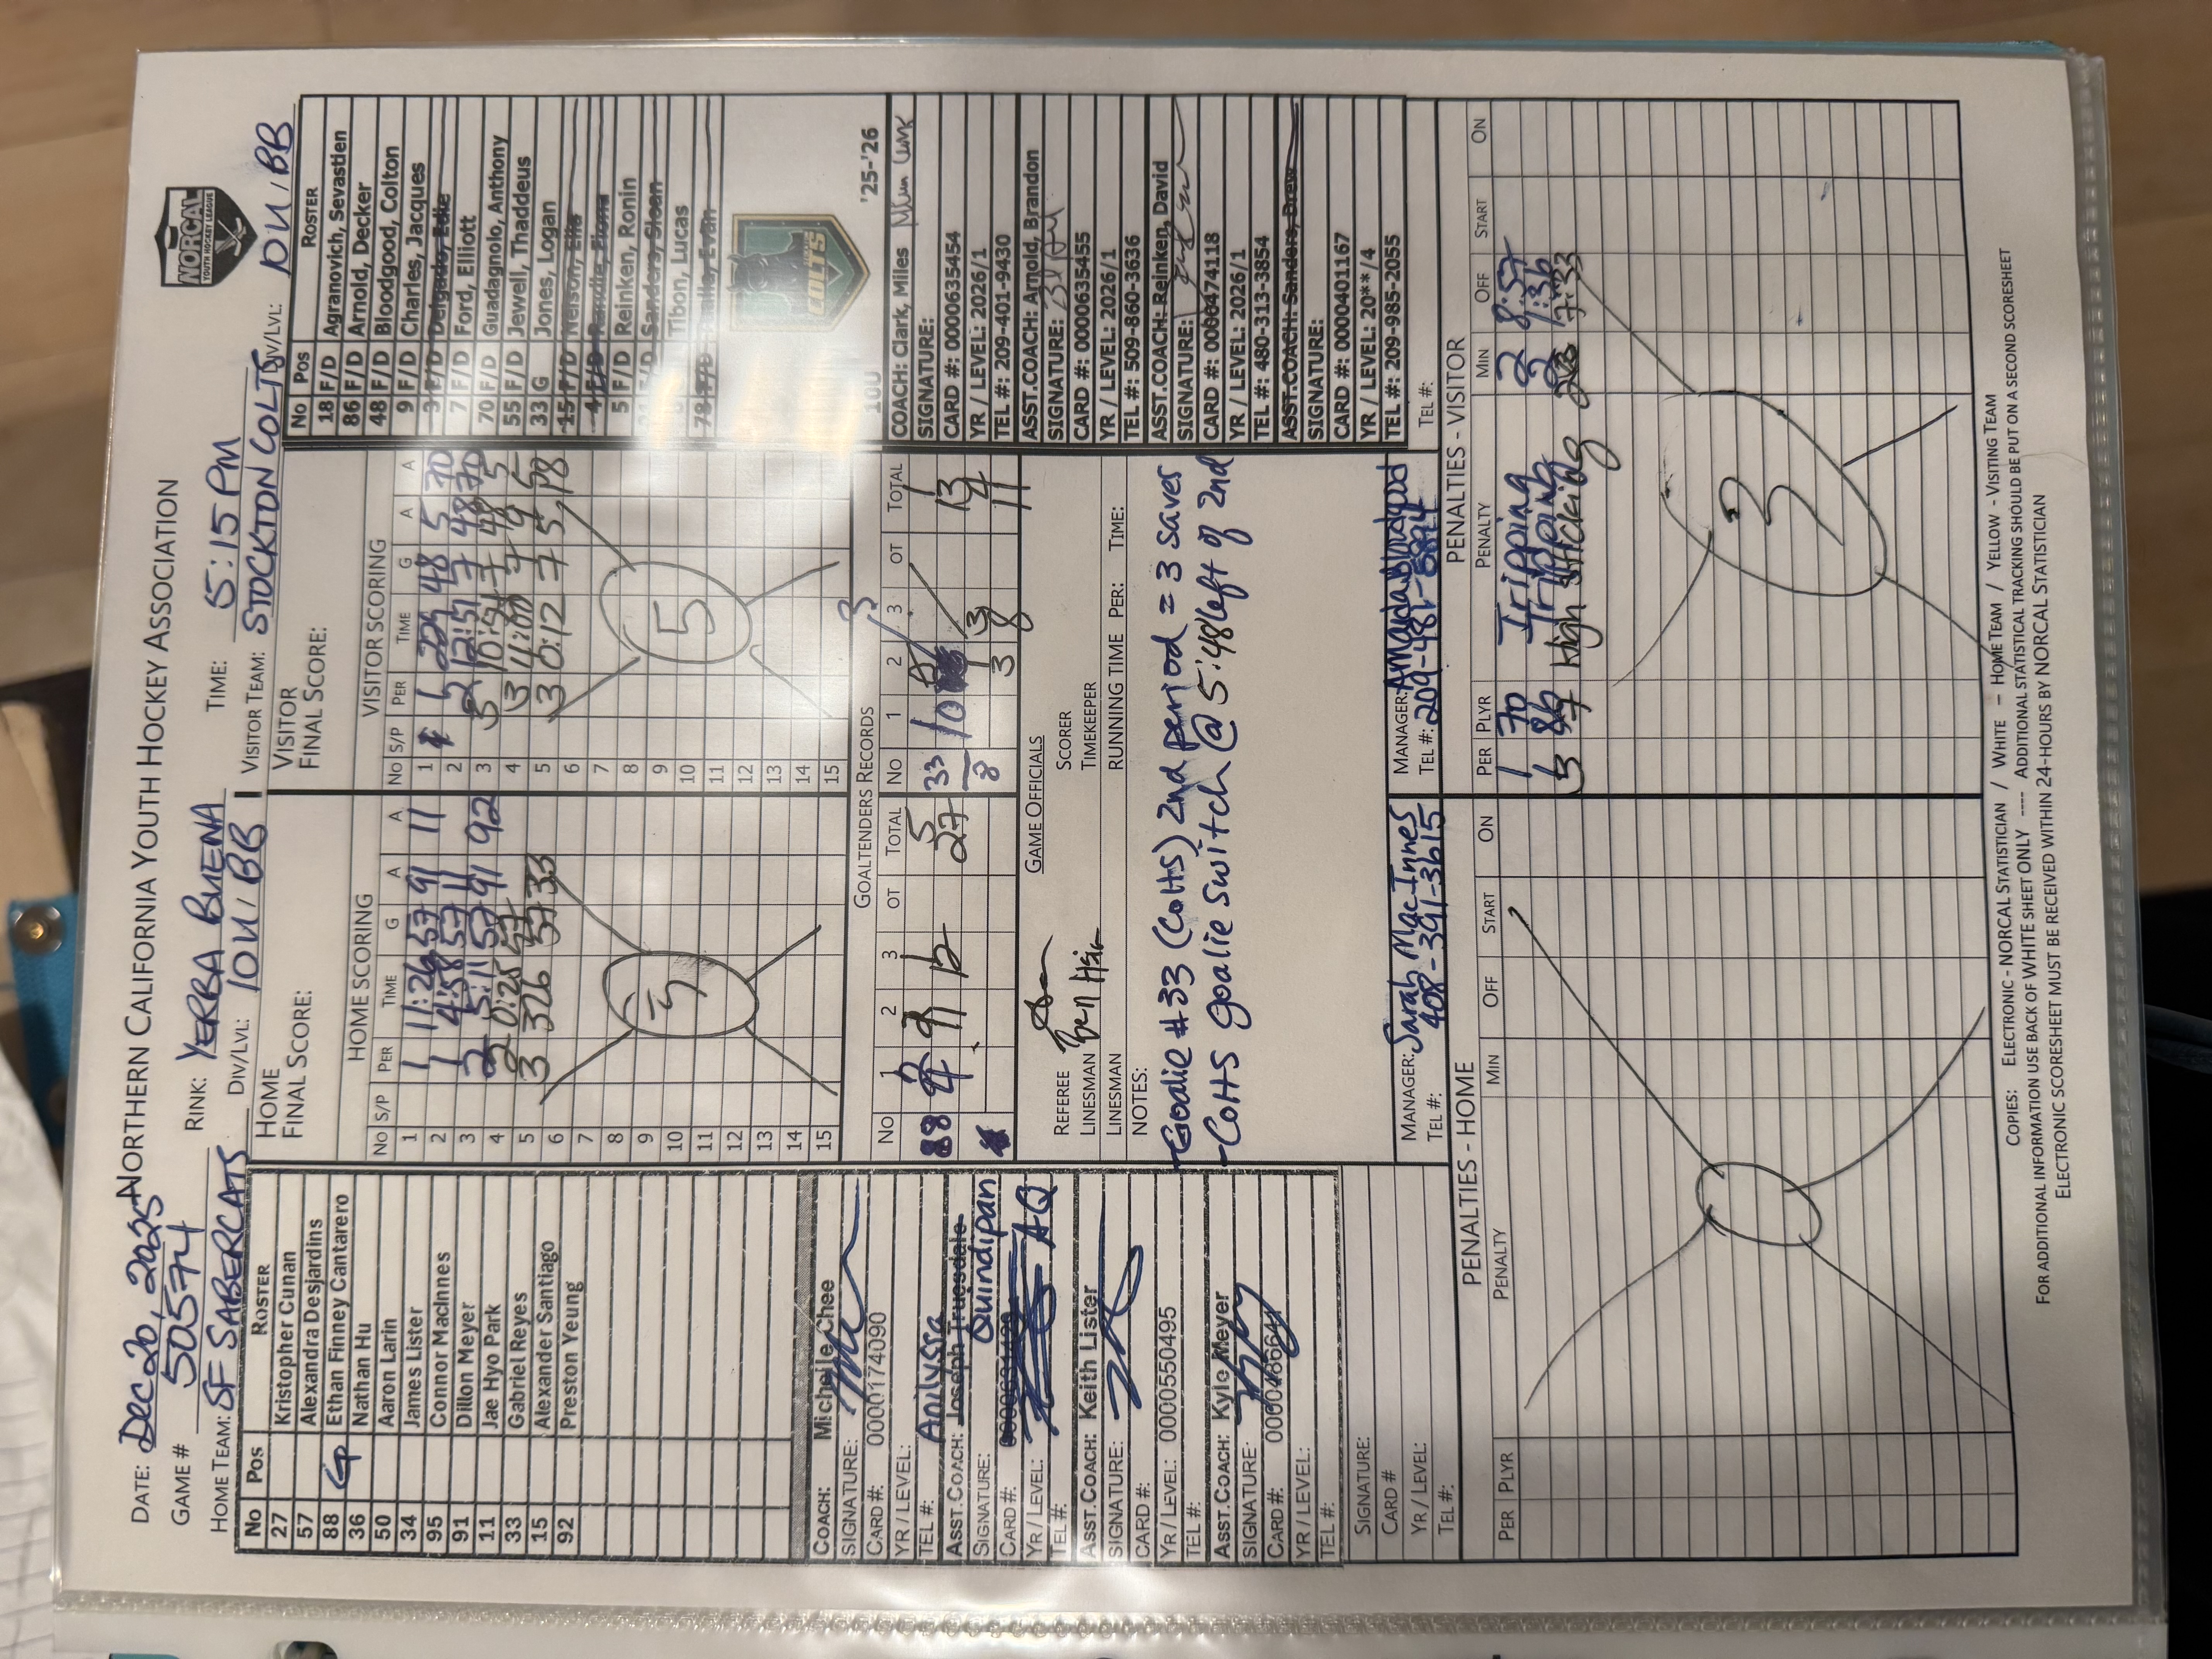 NORCAL
YOUTH HOCKEY LEAGUE
NORTHERN CALIFORNIA YOUTH HOCKEY ASSOCIATION
DATE: Dec 20, 2025
GAME # 50574
RINK: YERBA BUENA
TIME: 5:15 PM
HOME TEAM: SF SABERCATS
DIV/LVL: 10U / BB
VISITOR TEAM: STOCKTON COLTS
DIV/LVL: 10U / BB
No Pos ROSTER
27 Kristopher Cunan
57 Alexandra Desjardins
88 G Ethan Finney Cantarero
36 Nathan Hu
50 Aaron Larin
34 James Lister
95 Connor MacInnes
91 Dillon Meyer
11 Jae Hyo Park
33 Gabriel Reyes
15 Alexander Santiago
92 Preston Yeung
COACH: Michelle Chee
SIGNATURE:
CARD #: 0000174090
YR / LEVEL:
TEL #:
Anilyssa
ASST.COACH: Joseph Truesdale
Quindipan
SIGNATURE:
CARD #:
YR / LEVEL: AQ
TEL #:
ASST.COACH: Keith Lister
SIGNATURE:
CARD #:
YR / LEVEL: 0000550495
TEL #:
ASST.COACH: Kyle Meyer
SIGNATURE:
CARD #:
YR / LEVEL:
TEL #:
SIGNATURE:
CARD #
YR / LEVEL:
TEL #:
HOME
FINAL SCORE:
HOME SCORING
No S/P PER TIME G A A
1 1 11:26 57 91 11
2 1 4:58 57 11
3 2 5:11 57 91 92
4 2 0:25 57
5 3 326 57 33
6
7
8
9
10
11
12
13
14
15
5
VISITOR
FINAL SCORE:
VISITOR SCORING
No S/P PER TIME G A A
1 1 48 5 70
2 2 12:57 7 48 70
3 10:51 7 48 5
4 3 4:00 7 9 5
5 3 0:12 7 5
6
7
8
9
10
11
12
13
14
15
5
GOALTENDERS RECORDS
No 1 2 3 OT TOTAL
88 5
9 12 27
No 1 2 3 OT TOTAL
33 10 13
8 3 8 11
GAME OFFICIALS
REFEREE
SCORER
LINESMAN Ben Hsia
TIMEKEEPER
LINESMAN
RUNNING TIME PER: TIME:
NOTES:
-Goalie #33 (Colts) 2nd period = 3 saves
-Colts goalie switch @ 5:48 left of 2nd
MANAGER: Sarah MacInnes
TEL #: 408-391-3615
MANAGER: Amanda Bloodgood
TEL #: 209-481-8824
No Pos ROSTER
18 F/D Agranovich, Sevastien
86 F/D Arnold, Decker
48 F/D Bloodgood, Colton
9 F/D Charles, Jacques
3 F/D Delgado, Edie
7 F/D Ford, Elliott
70 F/D Guadagnolo, Anthony
55 F/D Jewell, Thaddeus
33 G Jones, Logan
15 F/D Nelson, Ella
4 F/D
5 F/D Reinken, Ronin
F/D Sanders, Sloan
Tibon, Lucas
78 F/D Evan
COLTS
10U '25-'26
COACH: Clark, Miles
SIGNATURE:
CARD #: 0000635454
YR / LEVEL: 2026/1
TEL #: 209-401-9430
ASST.COACH: Arnold, Brandon
SIGNATURE:
CARD #: 0000635455
YR / LEVEL: 2026/1
TEL #: 509-860-3636
ASST.COACH: Reinken, David
SIGNATURE:
CARD #: 0000474118
YR / LEVEL: 2026/1
TEL #: 480-313-3854
ASST.COACH: Sanders, Drew
SIGNATURE:
CARD #: 0000401167
YR / LEVEL: 20**/4
TEL #: 209-985-2055
TEL #:
PENALTIES - HOME
PER PLYR PENALTY MIN OFF START ON
0
PENALTIES - VISITOR
PER PLYR PENALTY MIN OFF START ON
1 70 Tripping 2 8:57
1 86 Tripping 2 1:36
3 7 High Sticking 7:33
3
COPIES: ELECTRONIC - NORCAL STATISTICIAN / WHITE – HOME TEAM / YELLOW - VISITING TEAM
FOR ADDITIONAL INFORMATION USE BACK OF WHITE SHEET ONLY ---- ADDITIONAL STATISTICAL TRACKING SHOULD BE PUT ON A SECOND SCORESHEET
ELECTRONIC SCORESHEET MUST BE RECEIVED WITHIN 24-HOURS BY NORCAL STATISTICIAN